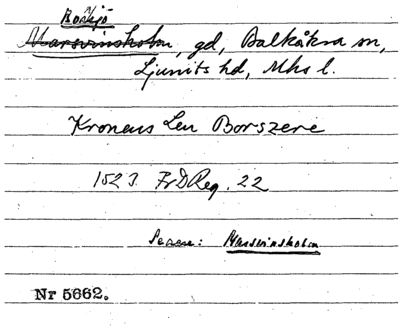 Bosjö
Marsvinsholm, gd, Balkåkra sn,
Ljunits hd, Mhs l.
Kronens Len Borszere
1523. FrDReg. 22
Senare: Marsvinsholm
Nr 5662.